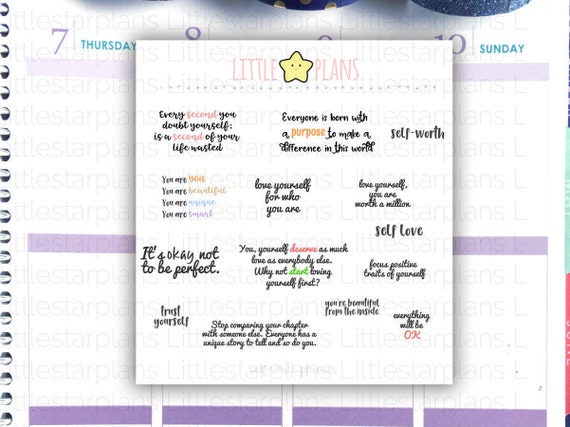 7 THURSDAY
10 SUNDAY
LITTLE PLANS
Every second you
doubt yourself;
is a second of your
life wasted
Everyone is born with
a purpose to make a
difference in this world
self-worth
You are you
You are beautiful
You are unique
You are smart
love yourself
for who
you are
love yourself,
you are
worth a million
self love
It's okay not
to be perfect.
You, yourself deserve as much
love as everybody else.
Why not start loving
yourself first?
focus positive
traits of yourself
trust
yourself
Stop comparing your chapter
with someone else. Everyone has a
unique story to tell and so do you.
you're beautiful
from the inside
everything
will be
OK
Littlestarplans